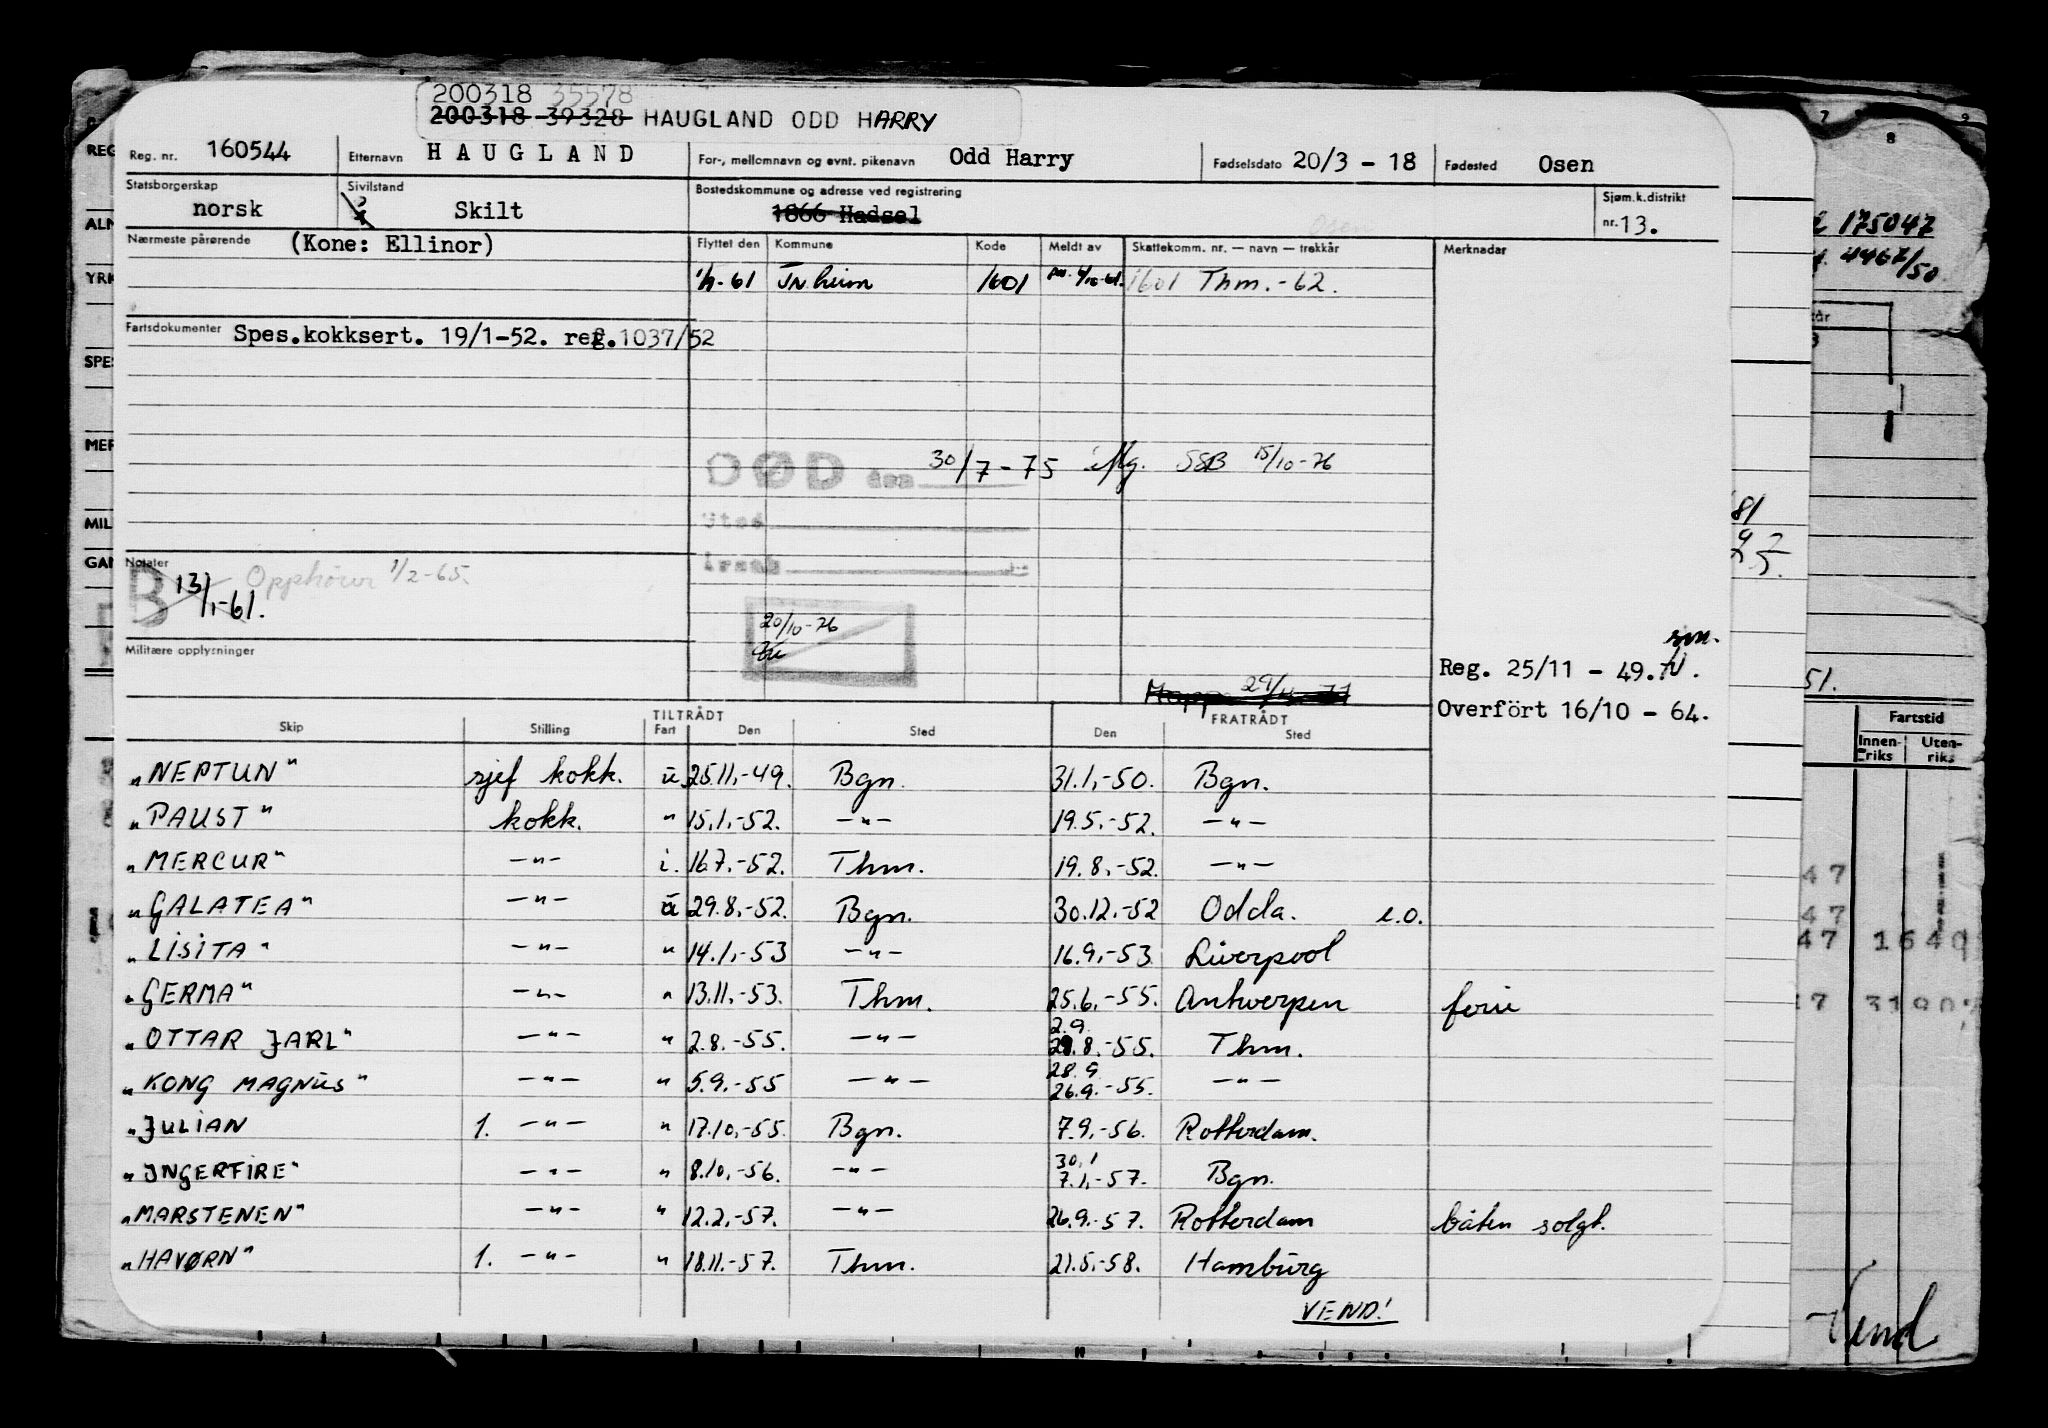 200318 35578
200318 39328 HAUGLAND ODD HARRY
Reg. nr. 160544 Etternavn HAUGLAND For-, mellomnavn og evnt. pikenavn Odd Harry Fødselsdato 20/3 - 18 Fødested Osen
Statsborgerskap norsk Sivilstand Skilt Bostedskommune og adresse ved registrering 1866 Hadsel Sjøm.k.distrikt nr. 13.
Nærmeste pårørende (Kone: Ellinor) Flyttet den Kommune Kode Meldt av Skattekomm. nr. — navn — trekkår Merknader
-61 Tr.heim 1601 1601 Thm.-62.
Fartsdokumenter Spes.kokksert. 19/1-52. ref.1037/52
DØD den 30/7-75 SSB 15/10-76
Sted
Årsak
Notater B 13/1-61. Opphører 1/2-65.
20/10-76
Militære opplysninger
sm.
Reg. 25/11 - 49.
Mappe 29/
Overført 16/10 - 64.
TILTRÅDT FRATRÅDT
Skip Stilling Fart Den Sted Den Sted
"NEPTUN" sjef kokk. u 25.11.-49. Bgn. 31.1.-50. Bgn.
"PAUST" kokk. " 15.1.-52. —"— 19.5.-52. —"—
"MERCUR" —"— i. 16.7.-52. Thm. 19.8.-52. —"—
"GALATEA" —"— u 29.8.-52. Bgn. 30.12.-52 Odda. e.o.
"LISITA" —"— " 14.1.-53 —"— 16.9.-53. Liverpool
"GERMA" —"— " 13.11.-53. Thm. 25.6.-55. Antwerpen ferie
"OTTAR JARL" —"— " 2.8.-55. —"— 2.9. 8.-55. Thm.
"KONG MAGNUS" —"— " 5.9.-55 —"— 28.9 26.9.-55. —"—
"JULIAN 1. —"— " 17.10.-55. Bgn. 7.9.-56. Rotterdam.
"INGERFIRE" —"— " 8.10.-56. —"— 30.1 7.1.-57. Bgn.
"MARSTENEN" —"— " 12.2.-57. —"— 26.9.-57. Rotterdam båten solgt.
"HAVØRN" 1. —"— " 18.11.-57. Thm. 21.5.-58. Hamburg
VEND!
REG
ALN
YRK
SPES
MER
MIL
GAN
7 8 9
175047
4467/50
81
51.
Fartstid
Innen-riks Uten-riks
47
47
47 1640
3190
Vend